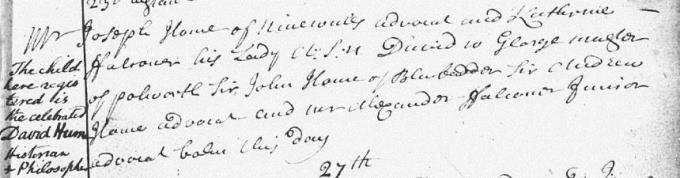 Mr Joseph Home of Ninewalls advocat and Katherine
ffalconer his Lady Ch: S: N David W George master
of polworth Sir John Home of Blackadder Sir Andrew
Home advocat and mr Alexander ffalconer Junior
advocat born this day
27th
The child
here regis
tered is
the celebrated
David Hume
Historian
& Philosopher